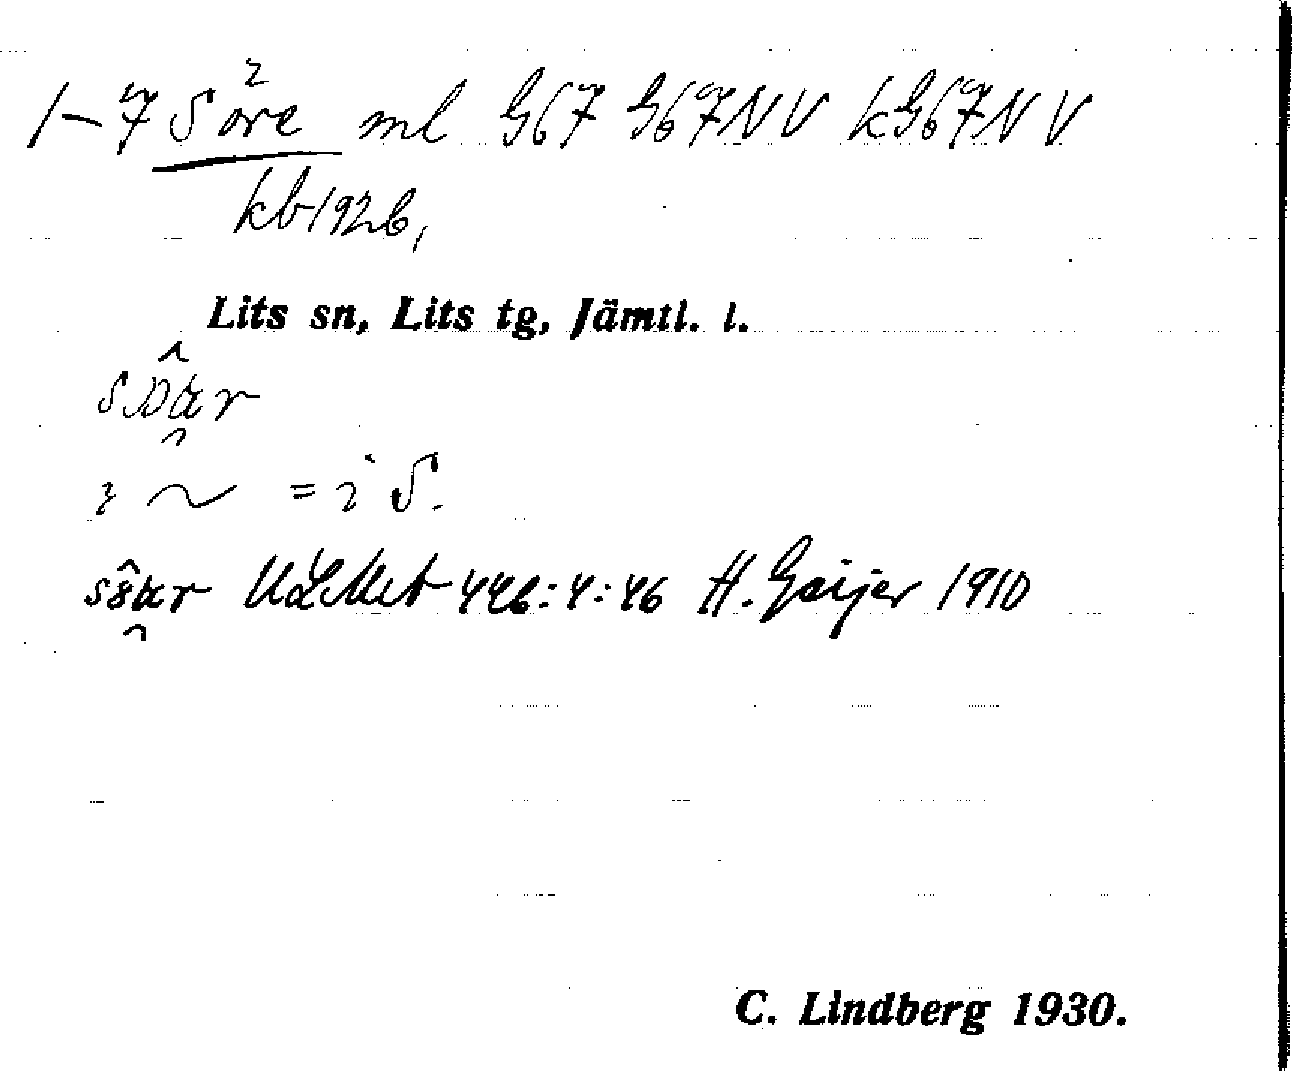 1-7 Söre ml G67 G67NV kG67NV
kb192b,
Lits sn, Lits tg, Jämtl. l.
= i S.
ULMA 446:4:46 H. Geijer 1910
C. Lindberg 1930.